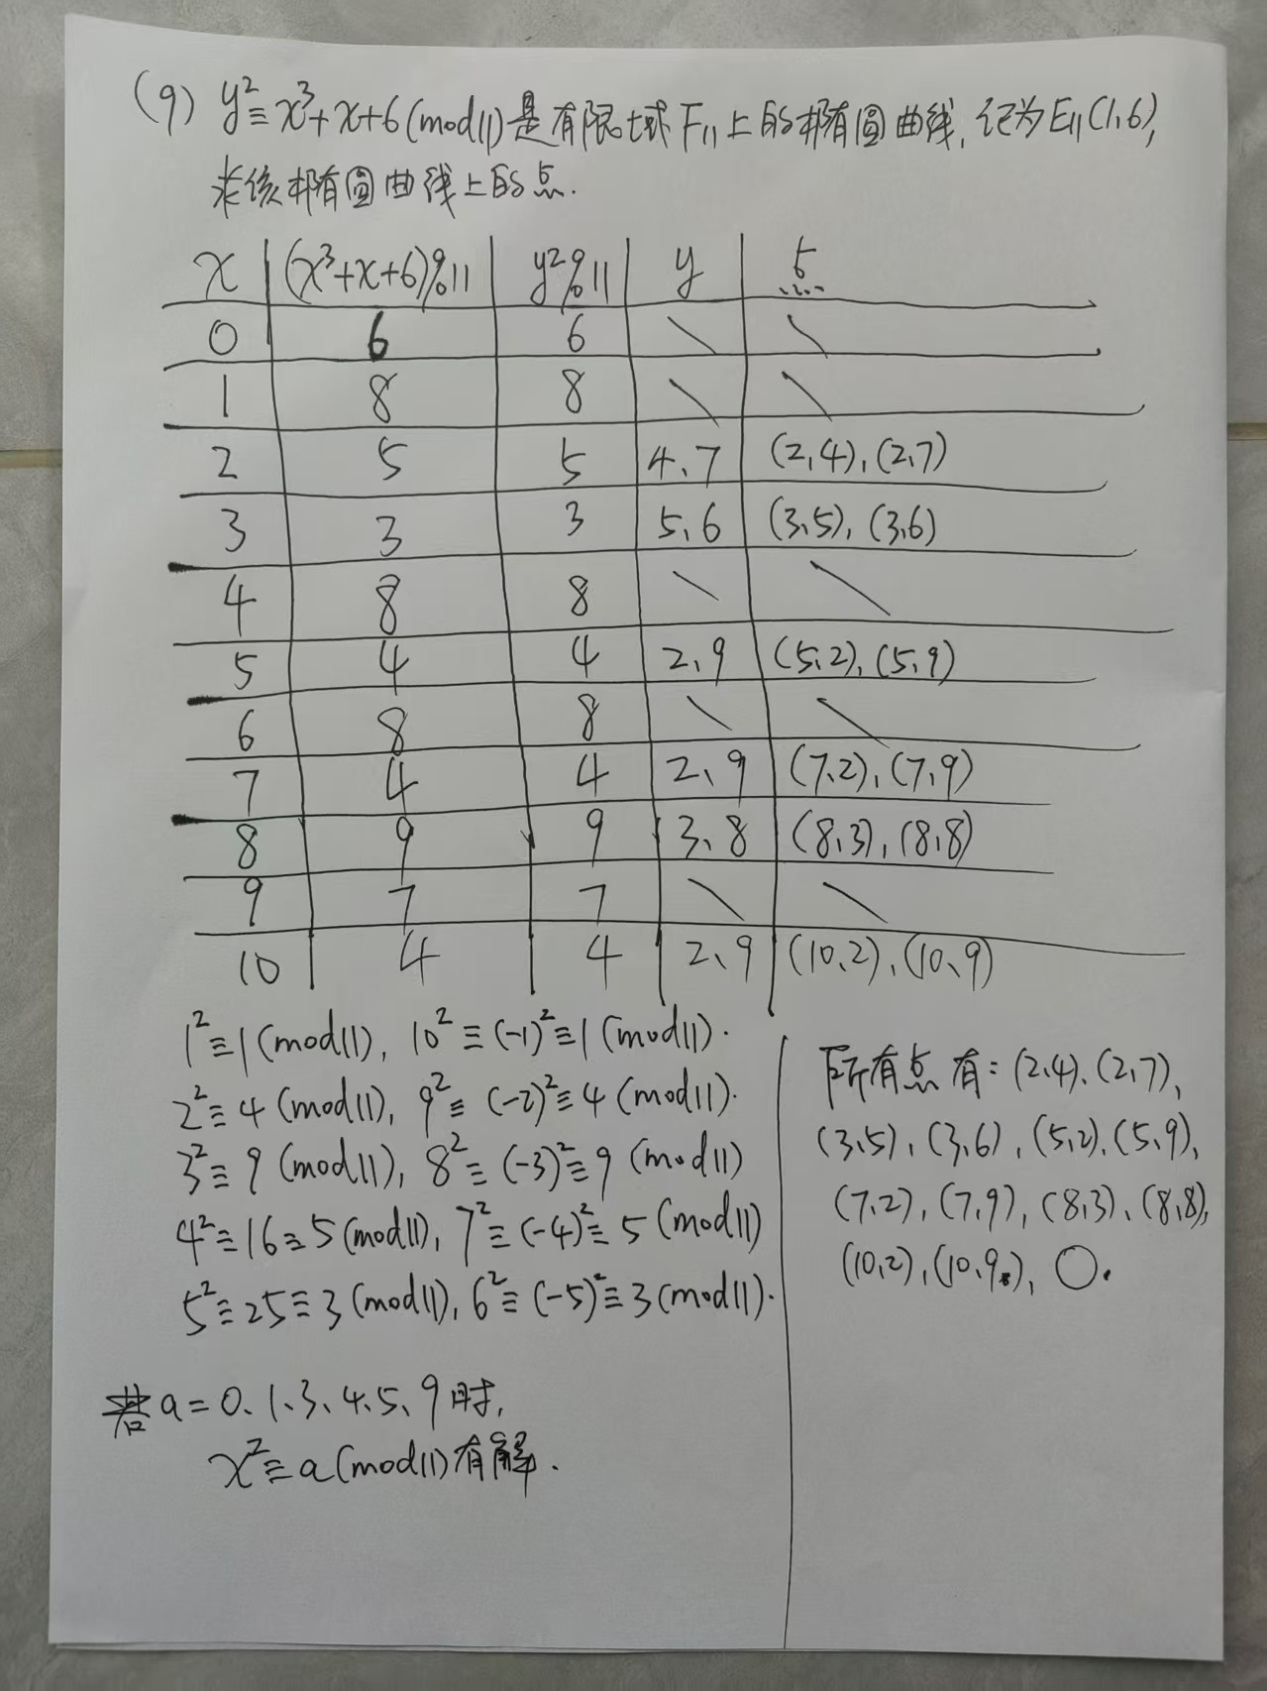 (9) y²≡x³+x+6(mod11)是有限域F₁₁上的椭圆曲线,记为E₁₁(1,6),
求该椭圆曲线上的点.
x (x³+x+6)%11 y²%11 y 点
0 6 6 \ \
1 8 8 \ \
2 5 5 4、7 (2,4),(2,7)
3 3 3 5、6 (3,5),(3,6)
4 8 8 \ \
5 4 4 2、9 (5,2),(5,9)
6 8 8 \ \
7 4 4 2、9 (7,2),(7,9)
8 9 9 3、8 (8,3),(8,8)
9 7 7 \ \
10 4 4 2、9 (10,2),(10,9)
1²≡1(mod11), 10²≡(-1)²≡1(mod11).
2²≡4(mod11), 9²≡(-2)²≡4(mod11).
3²≡9(mod11), 8²≡(-3)²≡9(mod11)
4²≡16≡5(mod11), 7²≡(-4)²≡5(mod11)
5²≡25≡3(mod11), 6²≡(-5)²≡3(mod11).
a=0、1、3、4、5、9时,
x²≡a(mod11)有解.
所有点有:(2,4)、(2,7)、
(3,5),(3,6),(5,2),(5,9),
(7,2),(7,9),(8,3)、(8,8),
(10,2),(10,9),O.